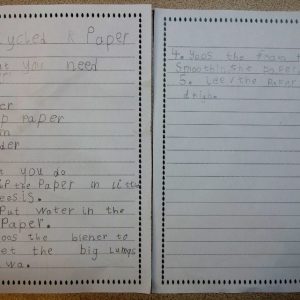 ycled & Paper
at you need
er
p paper
n
der
t you do
the Paper in
Put water in the
Paper.
oos the blener to
et the big lumps
wa.
4. yoos the fram
Smoothin the paper
5. Lee the paper
drigh.